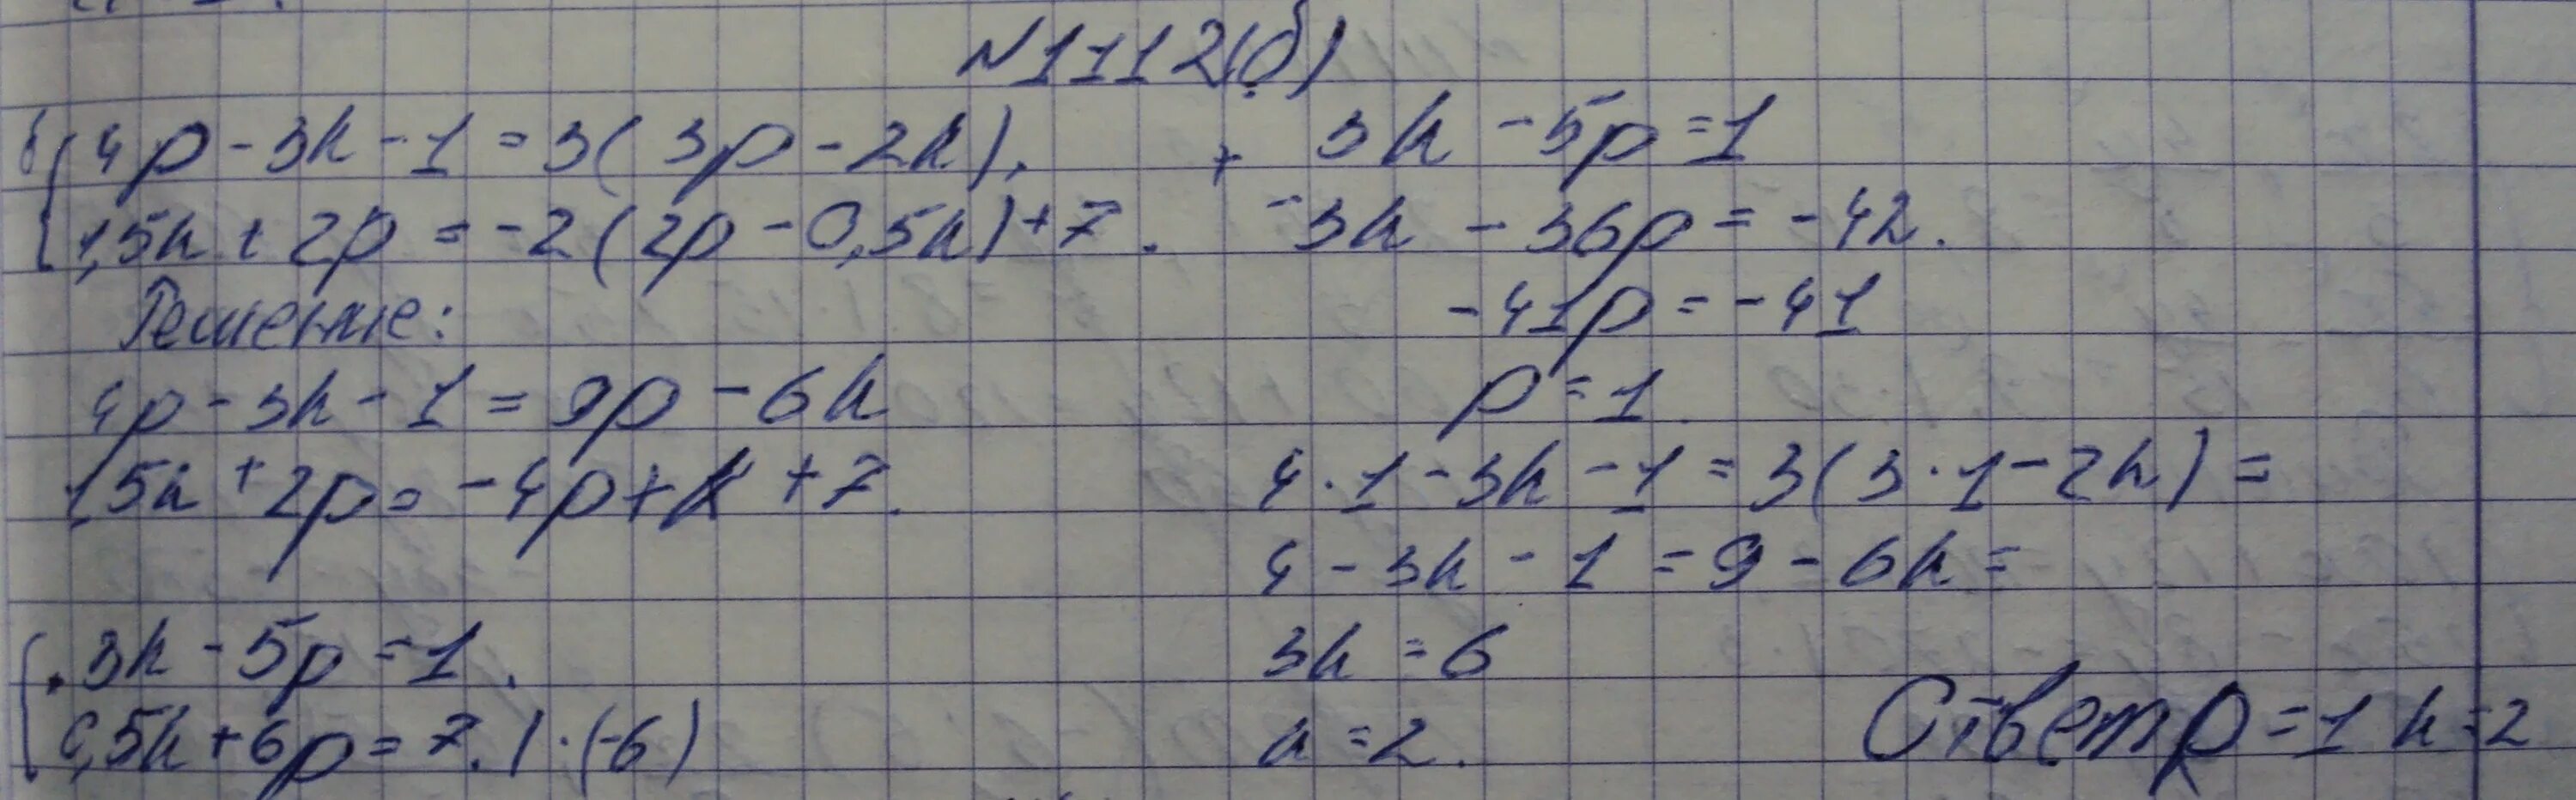 N1112(б)
б) 4p - 3k - 1 = 3(3p - 2k),
1,5k + 2p = -2(2p - 0,5k) + 7.
Решение:
4p - 3k - 1 = 9p - 6k
1,5k + 2p = -4p + k + 7.
3k - 5p = 1.
0,5k + 6p = 7. | · (-6)
+ 3k - 5p = 1
-3k - 36p = -42.
-41p = -41
p = 1
4 · 1 - 3k - 1 = 3(3 · 1 - 2k) =
4 - 3k - 1 = 9 - 6k =
3k = 6
k = 2.
Ответ p = 1 k = 2